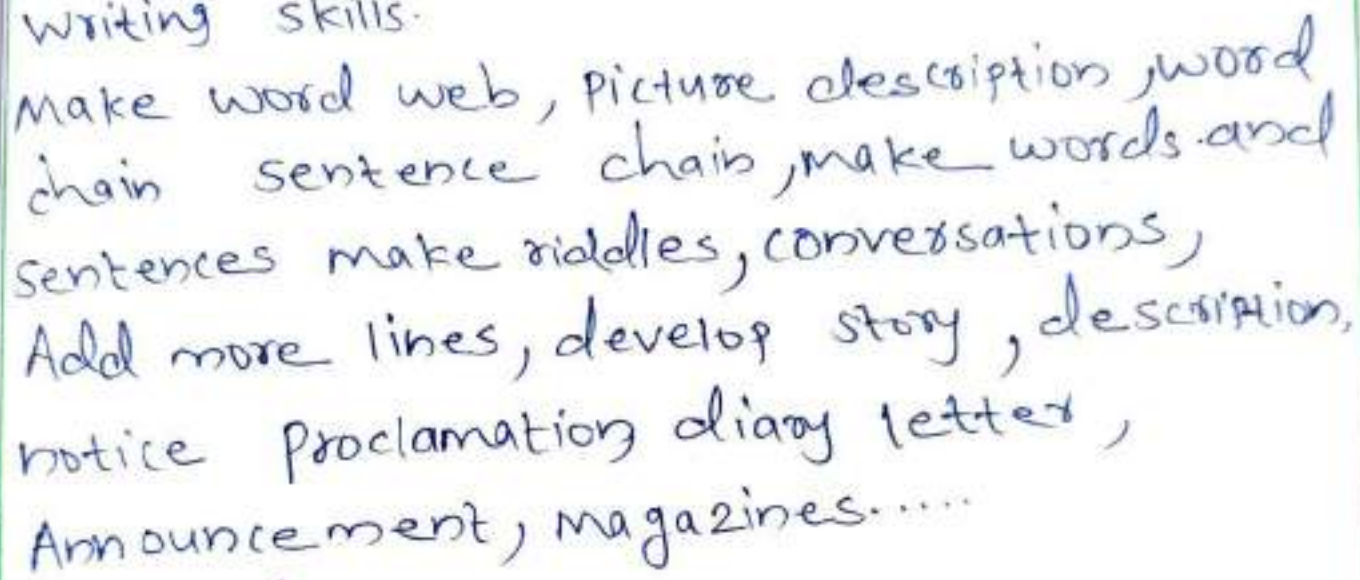 Writing skills.
Make word web, Picture description, word
chain sentence chain, make words and
sentences make riddles, conversations,
Add more lines, develop story, description,
notice proclamation diary letter,
Announcement, Magazines......